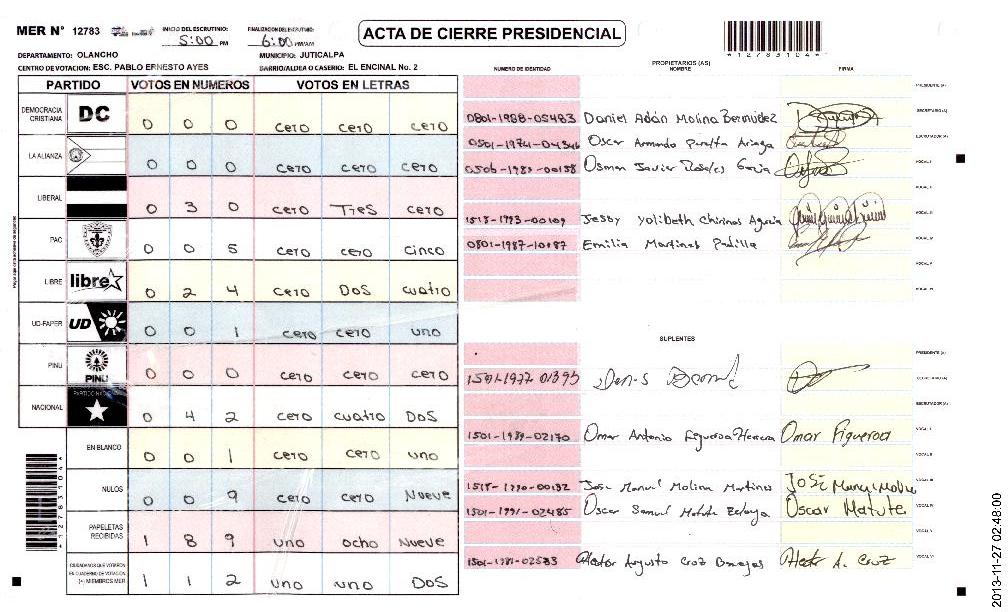 MER N° 12783
INICIO DEL ESCRUTINIO: 5:00 PM
FINALIZACION DEL ESCRUTINIO: 6:00 PM/AM
ACTA DE CIERRE PRESIDENCIAL
*12783104*
DEPARTAMENTO: OLANCHO
MUNICIPIO: JUTICALPA
CENTRO DE VOTACION: ESC. PABLO ERNESTO AYES
BARRIO/ALDEA O CASERIO: EL ENCINAL No. 2
PARTIDO VOTOS EN NUMEROS VOTOS EN LETRAS
DEMOCRACIA CRISTIANA DC 0 0 0 cero cero cero
LA ALIANZA 0 0 0 cero cero cero
LIBERAL 0 3 0 cero Tres cero
PAC 0 0 5 cero cero cinco
LIBRE libre 0 2 4 cero Dos cuatro
UD-FAPER UD 0 0 1 cero cero uno
PINU PINU 0 0 0 cero cero cero
NACIONAL 0 4 2 cero cuatro Dos
EN BLANCO 0 0 1 cero cero uno
NULOS 0 0 9 cero cero Nueve
PAPELETAS RECIBIDAS 1 8 9 uno ocho Nueve
CIUDADANOS QUE VOTARON EN CUADERNO DE VOTACION (+) MIEMBROS MER 1 1 2 uno uno Dos
*12783104*
PROPIETARIOS (AS)
NUMERO DE IDENTIDAD NOMBRE FIRMA
PRESIDENTE (A)
0801-1988-05483 Daniel Adán Molina Bermúdez SECRETARIO (A)
Oscar Armando Peralta ESCRUTADOR (A)
0506-1983-00158 Osman Javier Rosales Garcia VOCAL I
VOCAL II
1518-1993-00109 Jessy Yolibeth Chirinos VOCAL III
0801-1987-10187 Emilia Martinez Padilla VOCAL IV
VOCAL V
VOCAL VI
SUPLENTES
PRESIDENTE (A)
1501-1977-01395 SECRETARIO (A)
ESCRUTADOR (A)
1501-1989-02170 Omar Antonio Figueroa Herrera Omar Figueroa VOCAL I
VOCAL II
1515-1990-00132 Jose Manuel Molina Martinez José VOCAL III
1501-1991-02485 Oscar Samuel Matute Oscar Matute VOCAL IV
VOCAL V
1501-1981-02533 Hector Augusto Cruz Hector A. Cruz VOCAL VI
2013-11-27 02:48:00